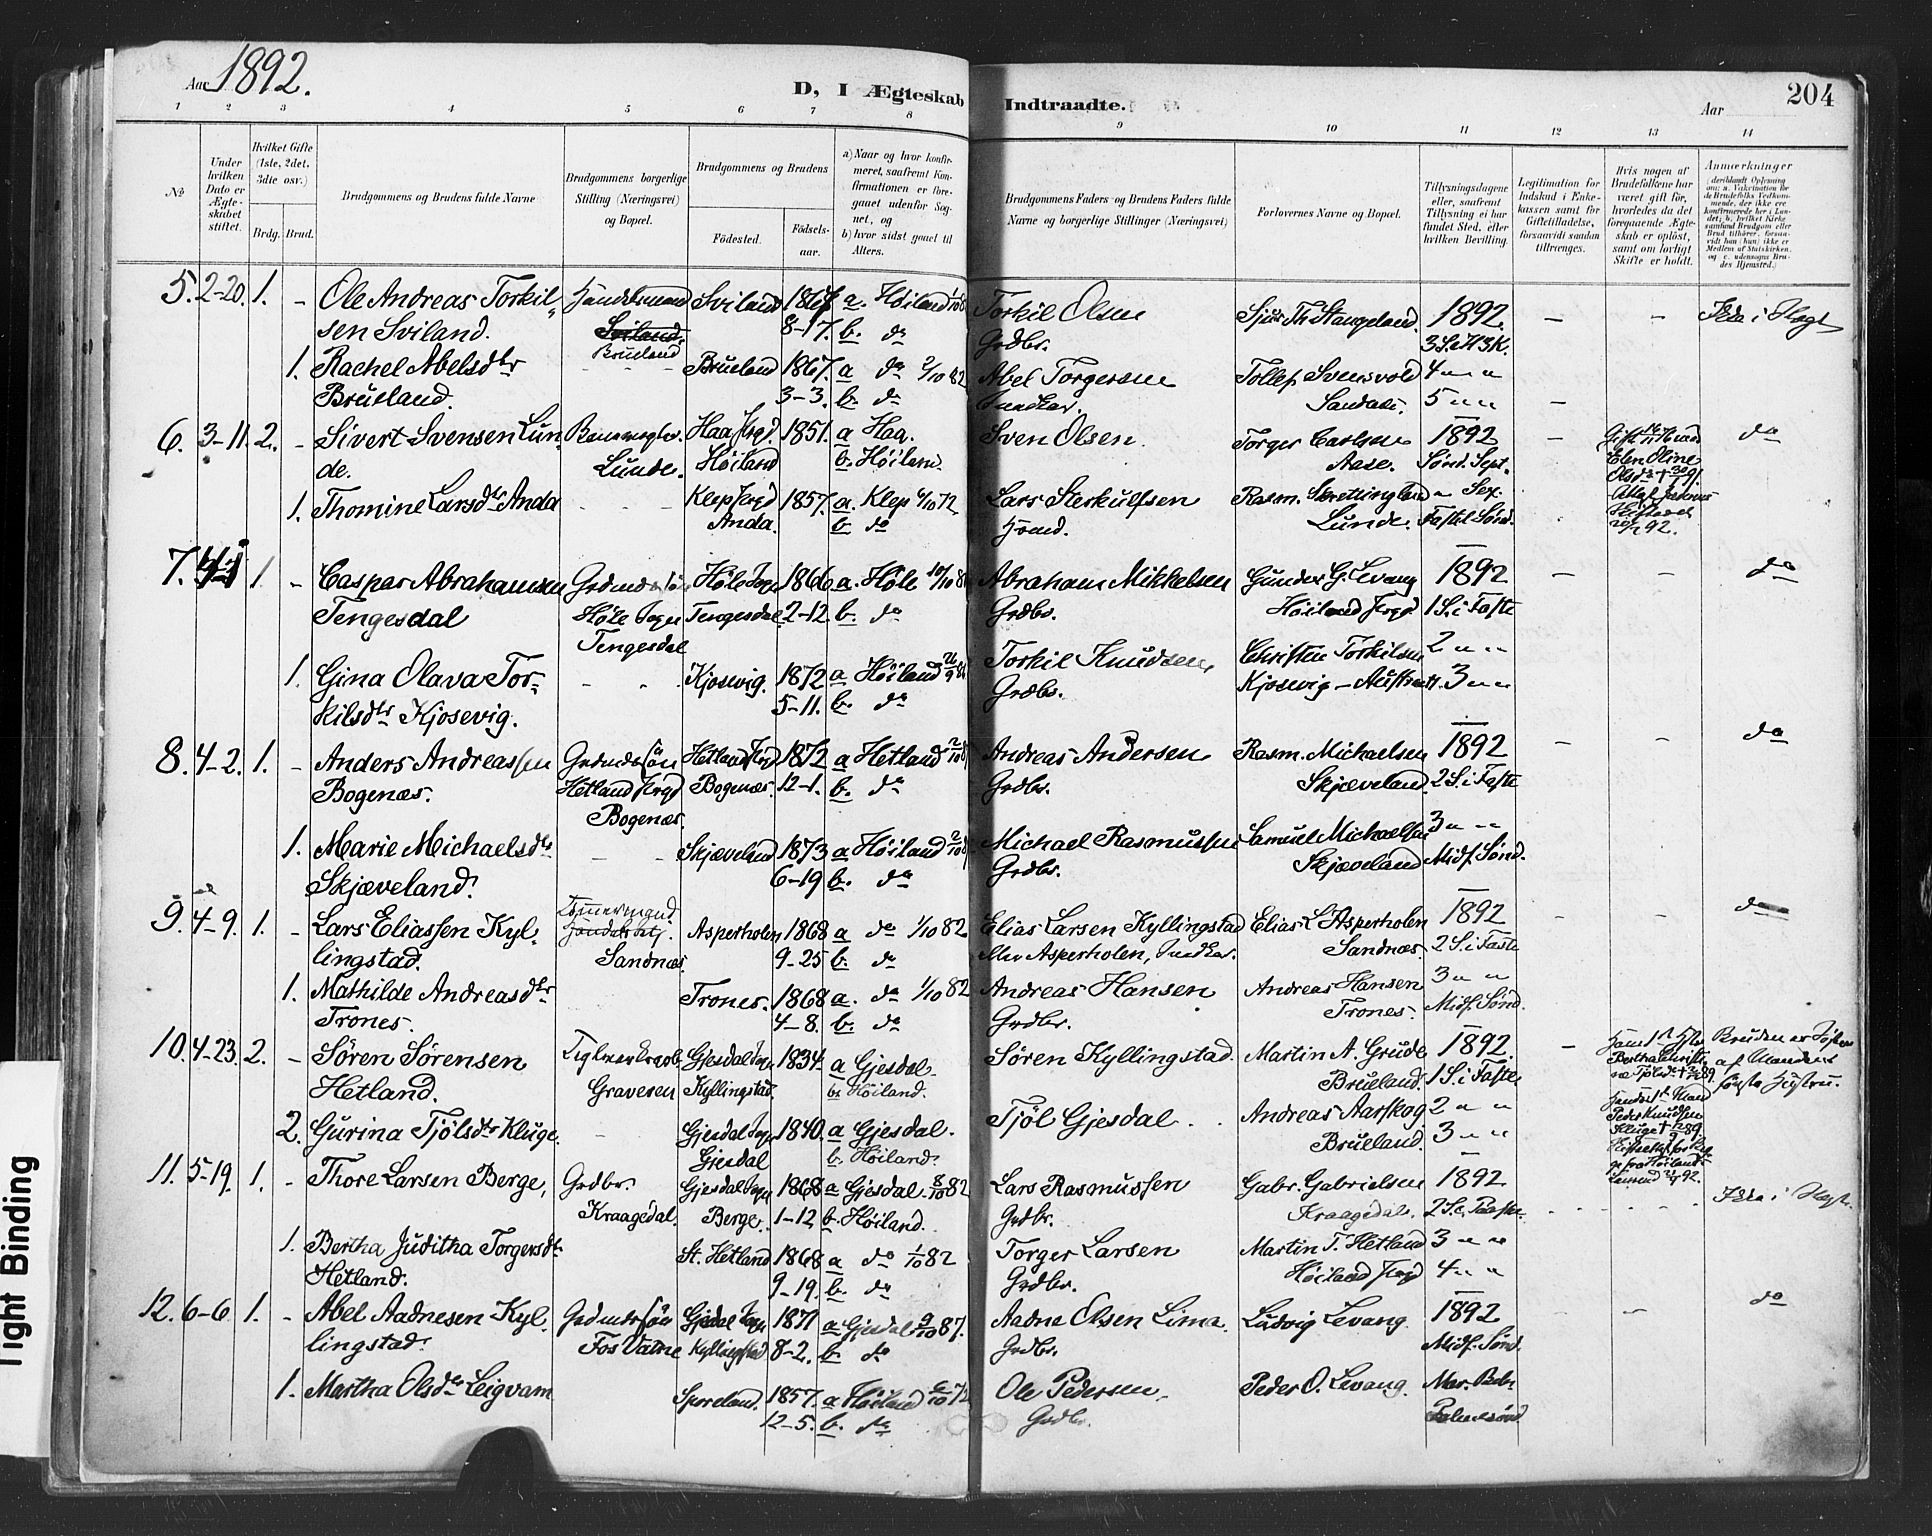 Aar 1892.
D, I Ægteskab Indtraadte.
Aar
204
1 2 3 4 5 6 7 8 9 10 11 12 13 14
№
Under hvilken Dato er Ægteskabet stiftet.
Hvilket Gifte (1ste, 2det, 3die osv.)
Brdg. Brud.
Brudgommens og Brudens fulde Navne
Brudgommens borgerlige Stilling (Næringsvei) og Bopæl.
Brudgommens og Brudens
Fødested.
Fødselsaar.
a) Naar og hvor konfirmeret, saafremt Konfirmationen er foregaaet udenfor Sognet, og
b) hvor sidst gaaet til Alters.
Brudgommens Faders og Brudens Faders fulde Navne og borgerlige Stillinger (Næringsvei)
Forlovernes Navne og Bopæl.
Tillysningsdagene eller, saafremt Tillysning ei har fundet Sted, efter hvilken Bevilling.
Legitimation for Indskud i Enkekassen samt for Giftetilladelse, forsaavidt saadan tiltrænges.
Hvis nogen af Brudefolkene har været gift før, hvorledes da det foregaaende Ægteskab er opløst, samt om lovligt Skifte er holdt.
Anmærkninger
5. 2-20. 1. - Ole Andreas Torkil- Svilland 1867 a. Høiland Torkil Olsen Sjur Th Stangeland. 1892. - -
sen Sviland. Sviland. 8-17. b. do Grdbr. 3.S.e.H3K.
Brueland
1. Rachel Abelsdtr - - - Brueland 1867. a do 2/10 82 Abel Torgersen Tollef Svensvold 4 " "
Brueland. 3-3. b. do Sandnæs. 5 " " -
6. 3-11. 2. - Sivert Svensen Lun- Haa Prgd. 1851. a Haa. Sven Olsen. Torger Carlsen 1892 - do
de. Lunde. Høiland b. Høiland. Aase. Sønd. Sept.
Elen Oline
1. Thomine Larsdtr Anda - - - Klep Prgd 1857. a. Klep 72 Lars Sterkulfsen Rasm. Skrettingland " Sex.
Anda. b do Lunde. Fastel. Sønd.
7. 1 - Caspar Abrahamsen Høle Sogn 1866 a. Høle Abraham Mikkelsen Gunder G. Levang 1892 - - do
Tengesdal Høle Sogn Tengesdal. 2-12. b. do Grdbr. Høiland Prgd 1 S. i Faste
Tengesdal
1. Gina Olava Tor- - - Kjosevig. 1872 a Høiland Torkil Knudsen, Christen Torkilsen 2 " "
kilsdtr Kjosevig. 5-11. b. do Grdbr. Kjosevig - Austratt. 3 " "
8. 4-2. 1. - Anders Andreassen Grdmdssøn Hetland Prgd 1872 a Hetland Andreas Andersen Rasm. Michaelsen 1892 - - do
Bogenæs. Hetland Prgd Bogenæs. 12-1. b. do Grdbr. Skjæveland. 2 S. i Faste
Bogenæs.
1. Marie Michaelsdtr - - Skjæveland 1873 a Høiland Michael Rasmussen Samuel Michaelsen 3 " "
Skjæveland. 6-19 b. do Grdbr. Skjæveland Midf. Sønd.
9. 4-9. 1. - Lars Eliassen Kyl- Tømmermand Asperholen 1868 a do 1/10 82 Elias Larsen Kyllingstad Elias L Asperholen 1892 - - do
lingstad. Sandnæs. 9-25 b. do eller Asperholen, Sandnæs. 2 S. i Faste
1. Mathilde Andreasdtr Trones. 1868 a. do 1/10 82 Andreas Hansen Andreas Hansen 3 " "
Trones. 4-8. b. do Grdbr. Trones. Midf. Sønd.
10. 4-23. 2. - Søren Sørensen Gjesdal Sogn 1834 a Gjesdal. Søren Kyllingstad. Martin A. Grude 1892. - Bruden er Søster
Hetland. Graveren Kyllingstad. b. Høiland. Brueland. 1 S. i Faste af Mandens
første Hustru.
2. Gurina Tjølsdtr Kluge. - Gjesdal Sogn 1840. a Gjesdal. Tjøl Gjesdal Andreas Aarskog 2 " "
Gjesdal b. Høiland. Brueland. 3 " "
11. 5-19. 1. - Thore Larsen Berge, Grdbr. Gjesdal Sogn 1868 a Gjesdal 8/10 82 Lars Rasmussen Gabr. Gabrielsen 1892
Kraagedal. Berge. 1-12 b. Høiland. Grdbr. Kraagedal. 2 S. e. Paaske.
1. Bertha Juditha Torgersdtr St. Hetland 1868 a do 1/10 82 Torger Larsen Martin T. Hetland 3 " "
Hetland. 9-19. b. do Grdbr. Høiland Prgd 4 " "
12. 6-6 1. - Abel Aadnesen Kyl- Grdmdssøn Gjesdal Sogn 1871 a Gjesdal 9/10 87. Aadne Olsen Lima. Ludvig Levang. 1892 - - do
lingstad. Fos Vatne Kyllingstad 8-2. b do Grdbr. Midf. Sønd.
1. Martha Olsdtr Leigvam Sporeland. 1857. a Høiland 72 Ole Pedersen. Peder O. Levang. Mar. Beb.
12-5. b. do Grdbr. Palmesønd.
Tight Binding